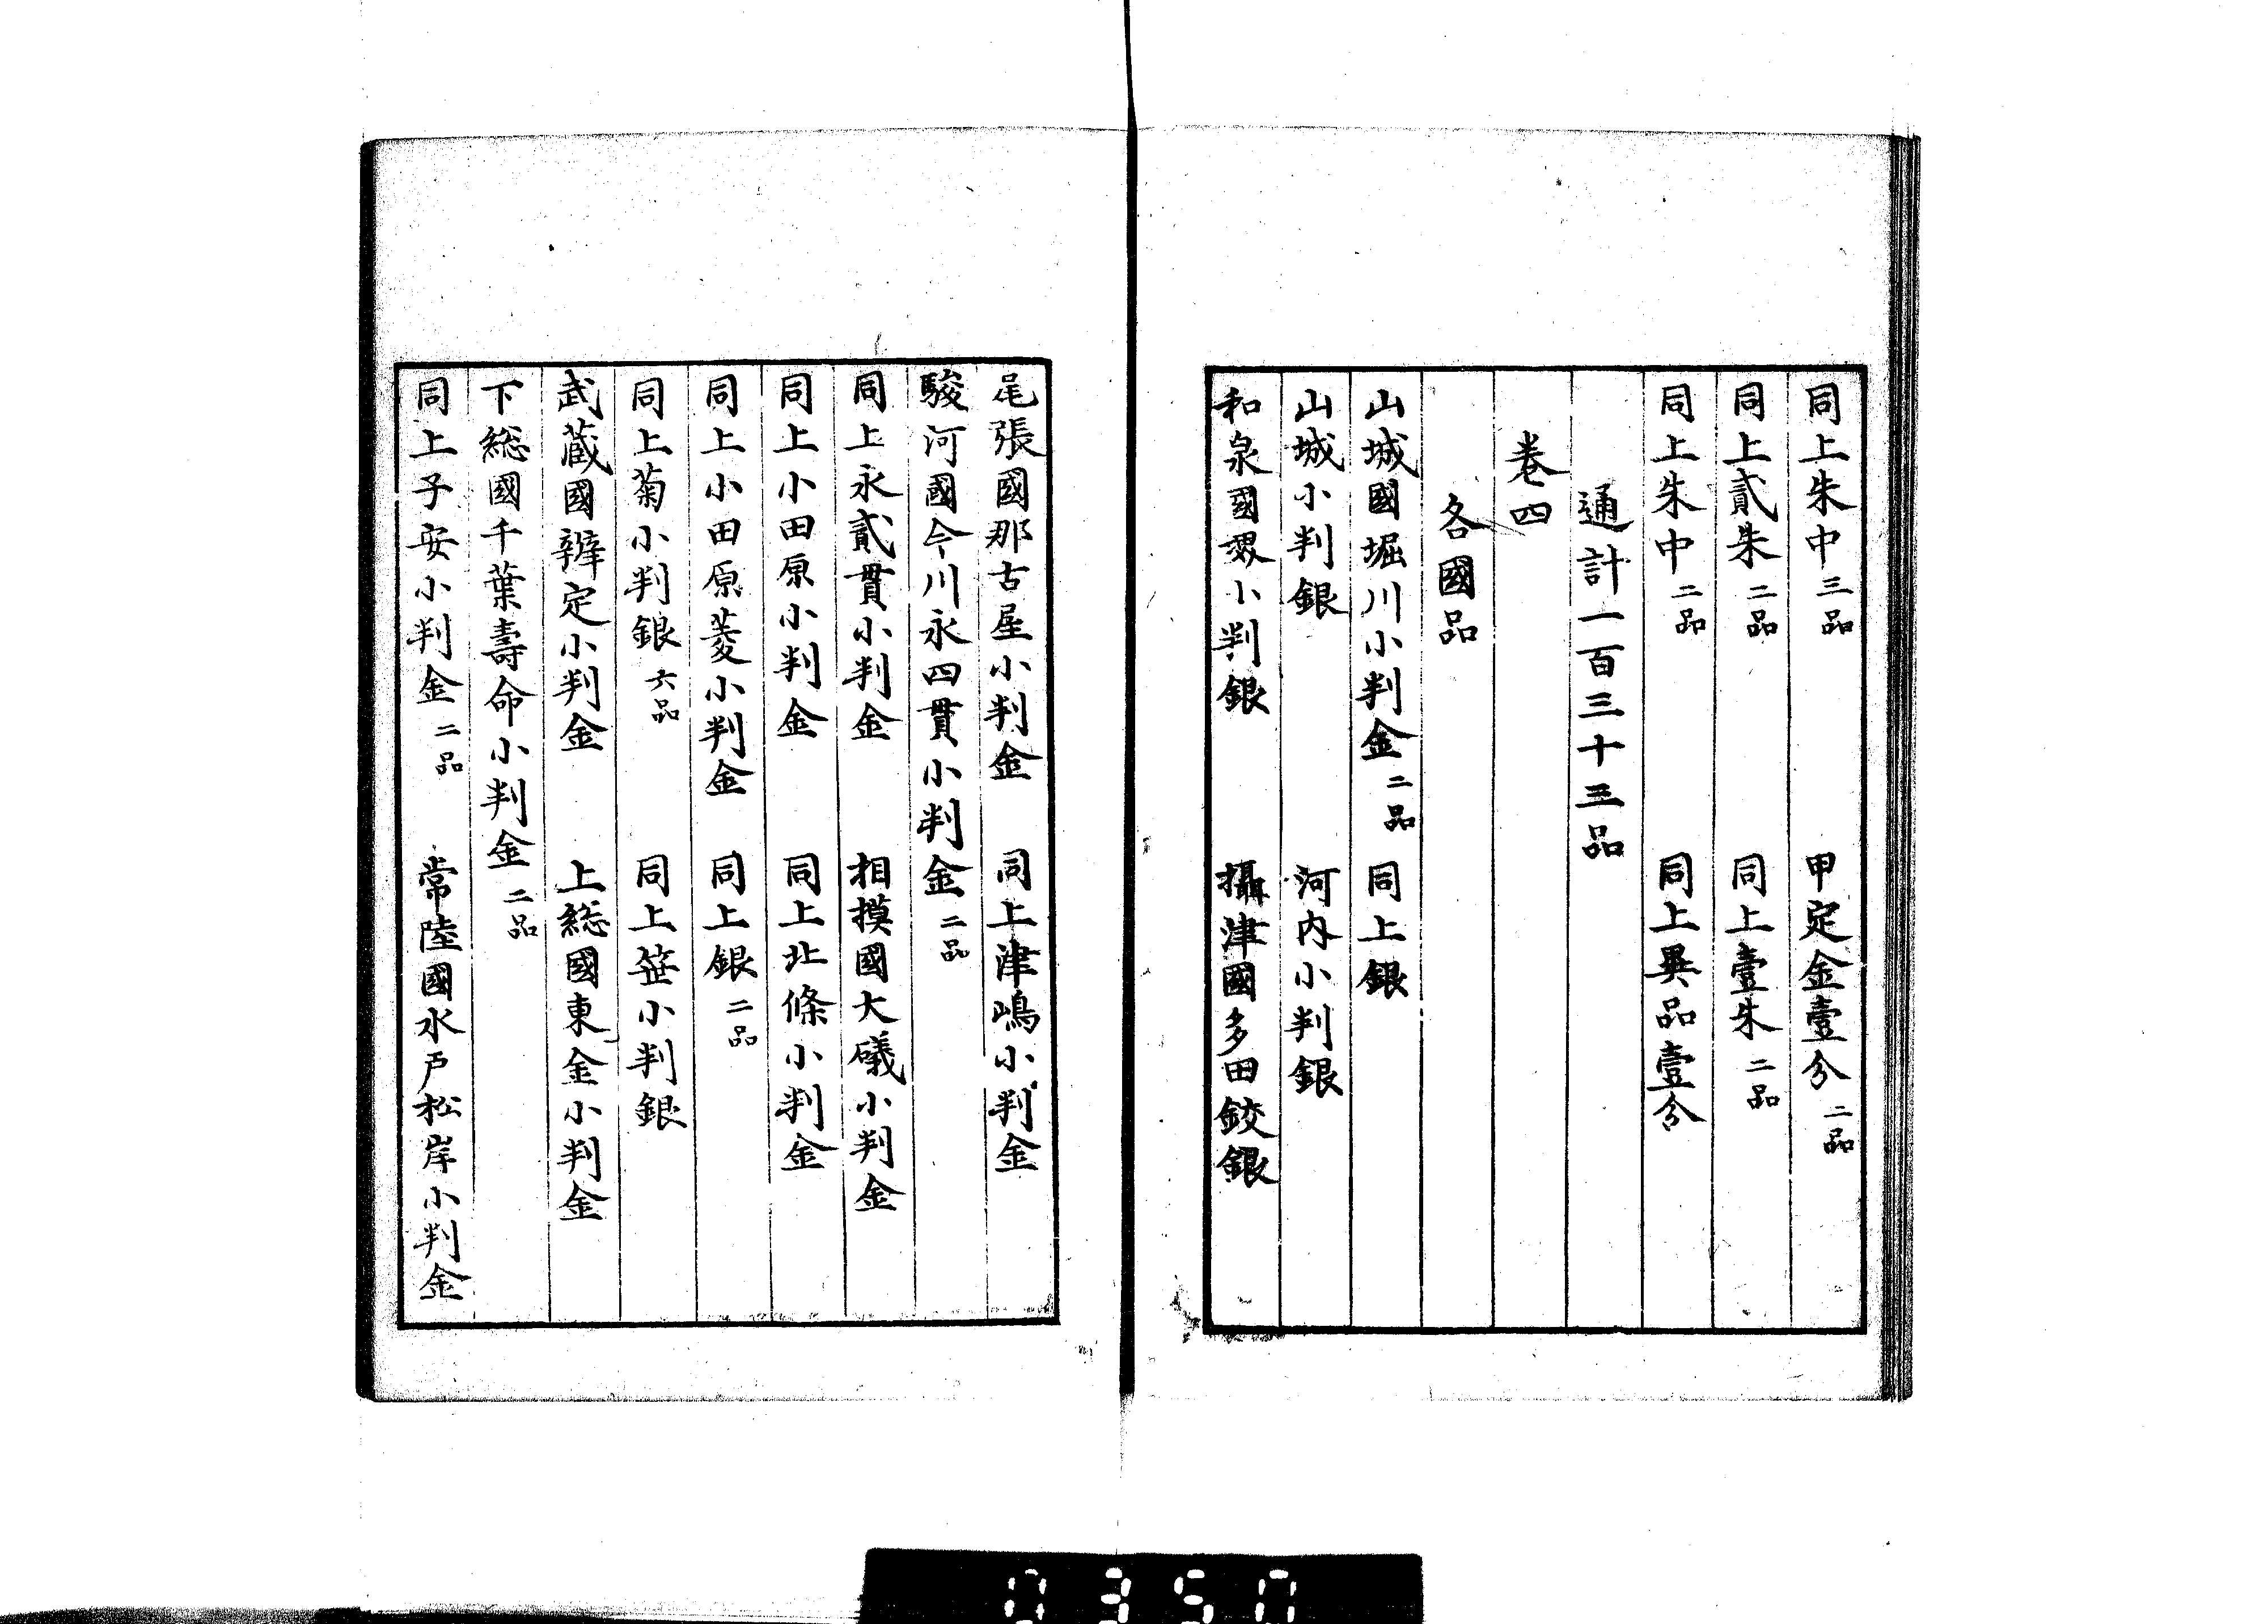 同上朱中三品　甲定金壹分二品
同上貳朱二品　同上壹朱二品
同上朱中二品　同上異品壹分
通計一百三十三品
卷四
各國品
山城國堀川小判金二品　同上銀
山城小判銀　河内小判銀
和泉國堺小判銀　攝津國多田銨銀
尾張國那古屋小判金　同上津嶋小判金
駿河國今川永四貫小判金二品
同上永貳貫小判金　相摸國大礒小判金
同上小田原小判金　同上北條小判金
同上小田原菱小判金　同上銀二品
同上菊小判銀六品　同上笹小判銀
武藏國辨定小判金　上総國東金小判金
下総國千葉壽命小判金二品
同上子安小判金二品　常陸國水戸松岸小判金
0350